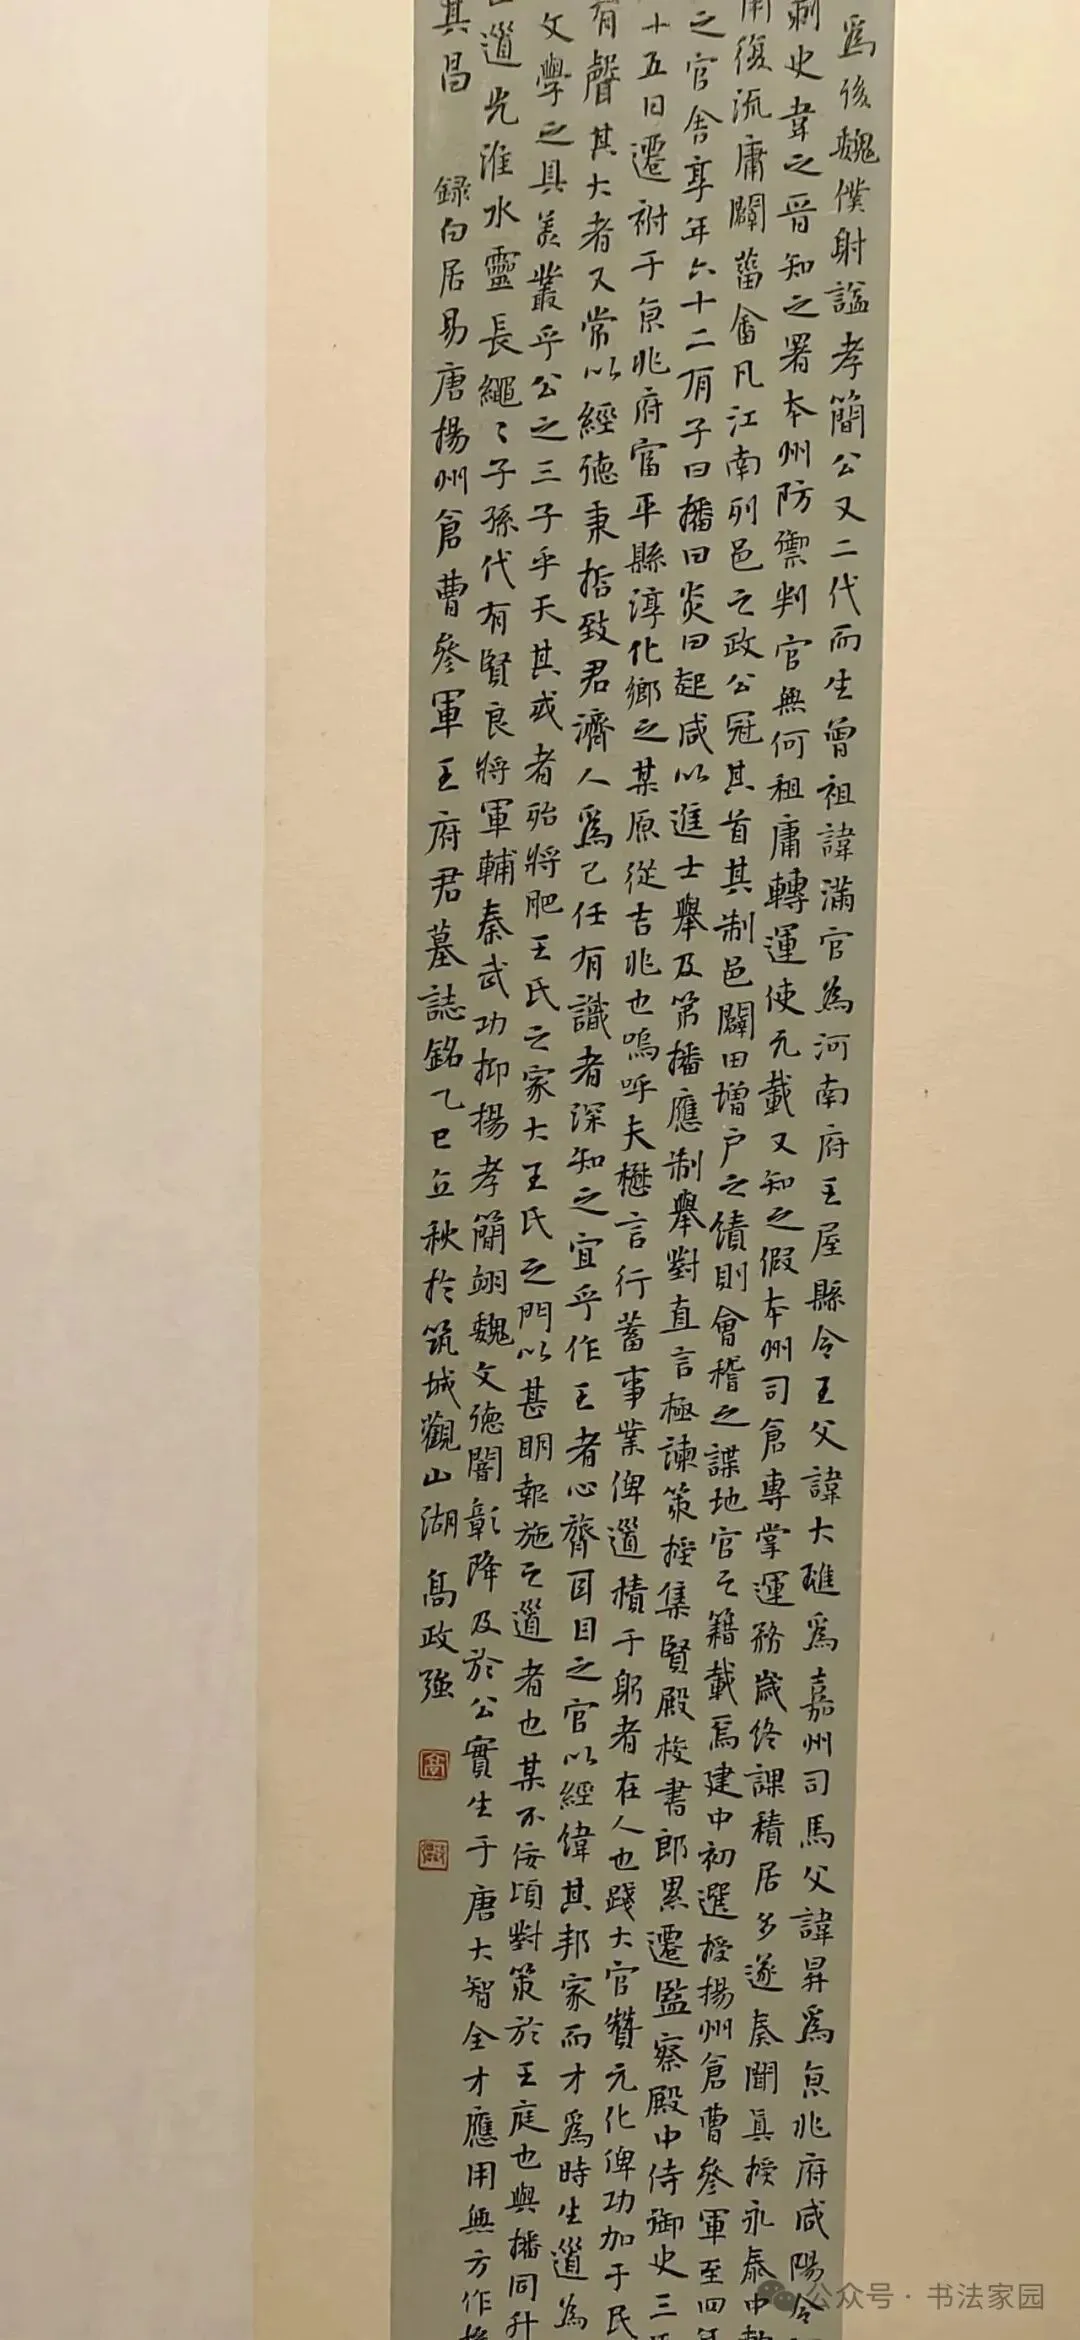 爲後魏僕射諡孝簡公又二代而生曾祖諱滿官爲河南府王屋縣令王父諱大璡爲嘉州司馬父諱昇爲京兆府咸陽令
刺史韋之晉知之署本州防禦判官無何租庸轉運使元載又知之假本州司倉專掌運務歲終課積居多遂奏聞真授永泰中勅
南復流庸闢菑畬凡江南列邑之政公冠其首其制邑闢田增户之績則會稽之諜地官之籍載焉建中初選授揚州倉曹參軍至四年
之官舍享年六十二有子曰播曰炎曰起咸以進士舉及第播應制舉對直言極諫策授集賢殿校書郎累遷監察殿中侍御史三
十五日遷祔于京兆府富平縣淳化鄉之某原從吉兆也嗚呼夫懋言行蓄事業俾道積于躬者在人也踐大官贊元化俾功加于民
有聲其大者又常以經德秉哲致君濟人爲己任有識者深知之宜乎作王者心膂耳目之官以經緯其邦家而才爲時生道爲
文學之具美叢乎公之三子乎天其或者殆將肥王氏之家大王氏之門以甚明報施之道者也某不佞頃對策於王庭也與播同升
道光淮水靈長繩〻子孫代有賢良將軍輔秦武功抑揚孝簡翊魏文德闇彰降及於公實生于唐大智全才應用無方作
其昌 録白居易唐揚州倉曹參軍王府君墓誌銘乙巳立秋於筑城觀山湖 高政强
公众号·书法家园